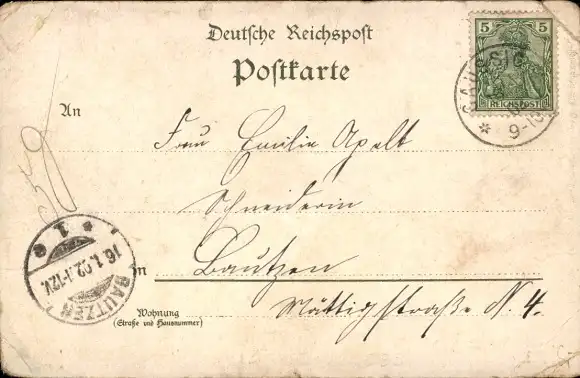 Deutsche Reichspost
Postkarte
5 5
REICHSPOST
GAUSSIG
9-10
An
Frau Emilie Apelt
Schneiderin
in Bautzen
Wohnung
(Straße und Hausnummer)
Mättigstraße N. 4.
BAUTZEN
16.1.02.11-12V.
* 1 e